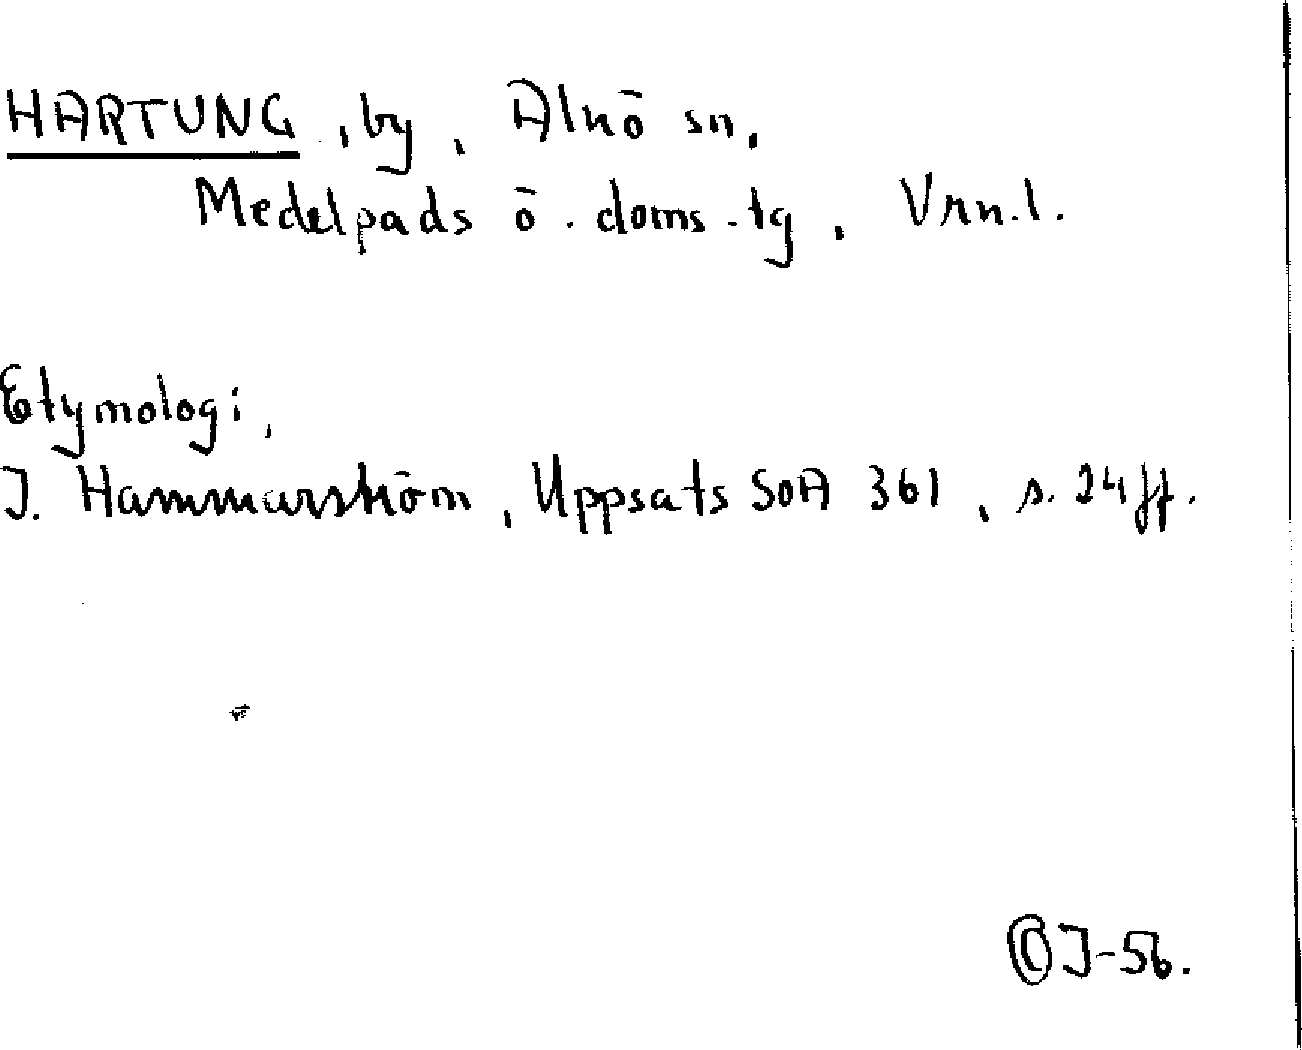 HARTUNG, by, Alnö sn,
Medelpads ö. doms.tg, Vrn.l.
Etymologi,
I. Hammarström, Uppsats SOA 361, s. 24 ff.
I-56.